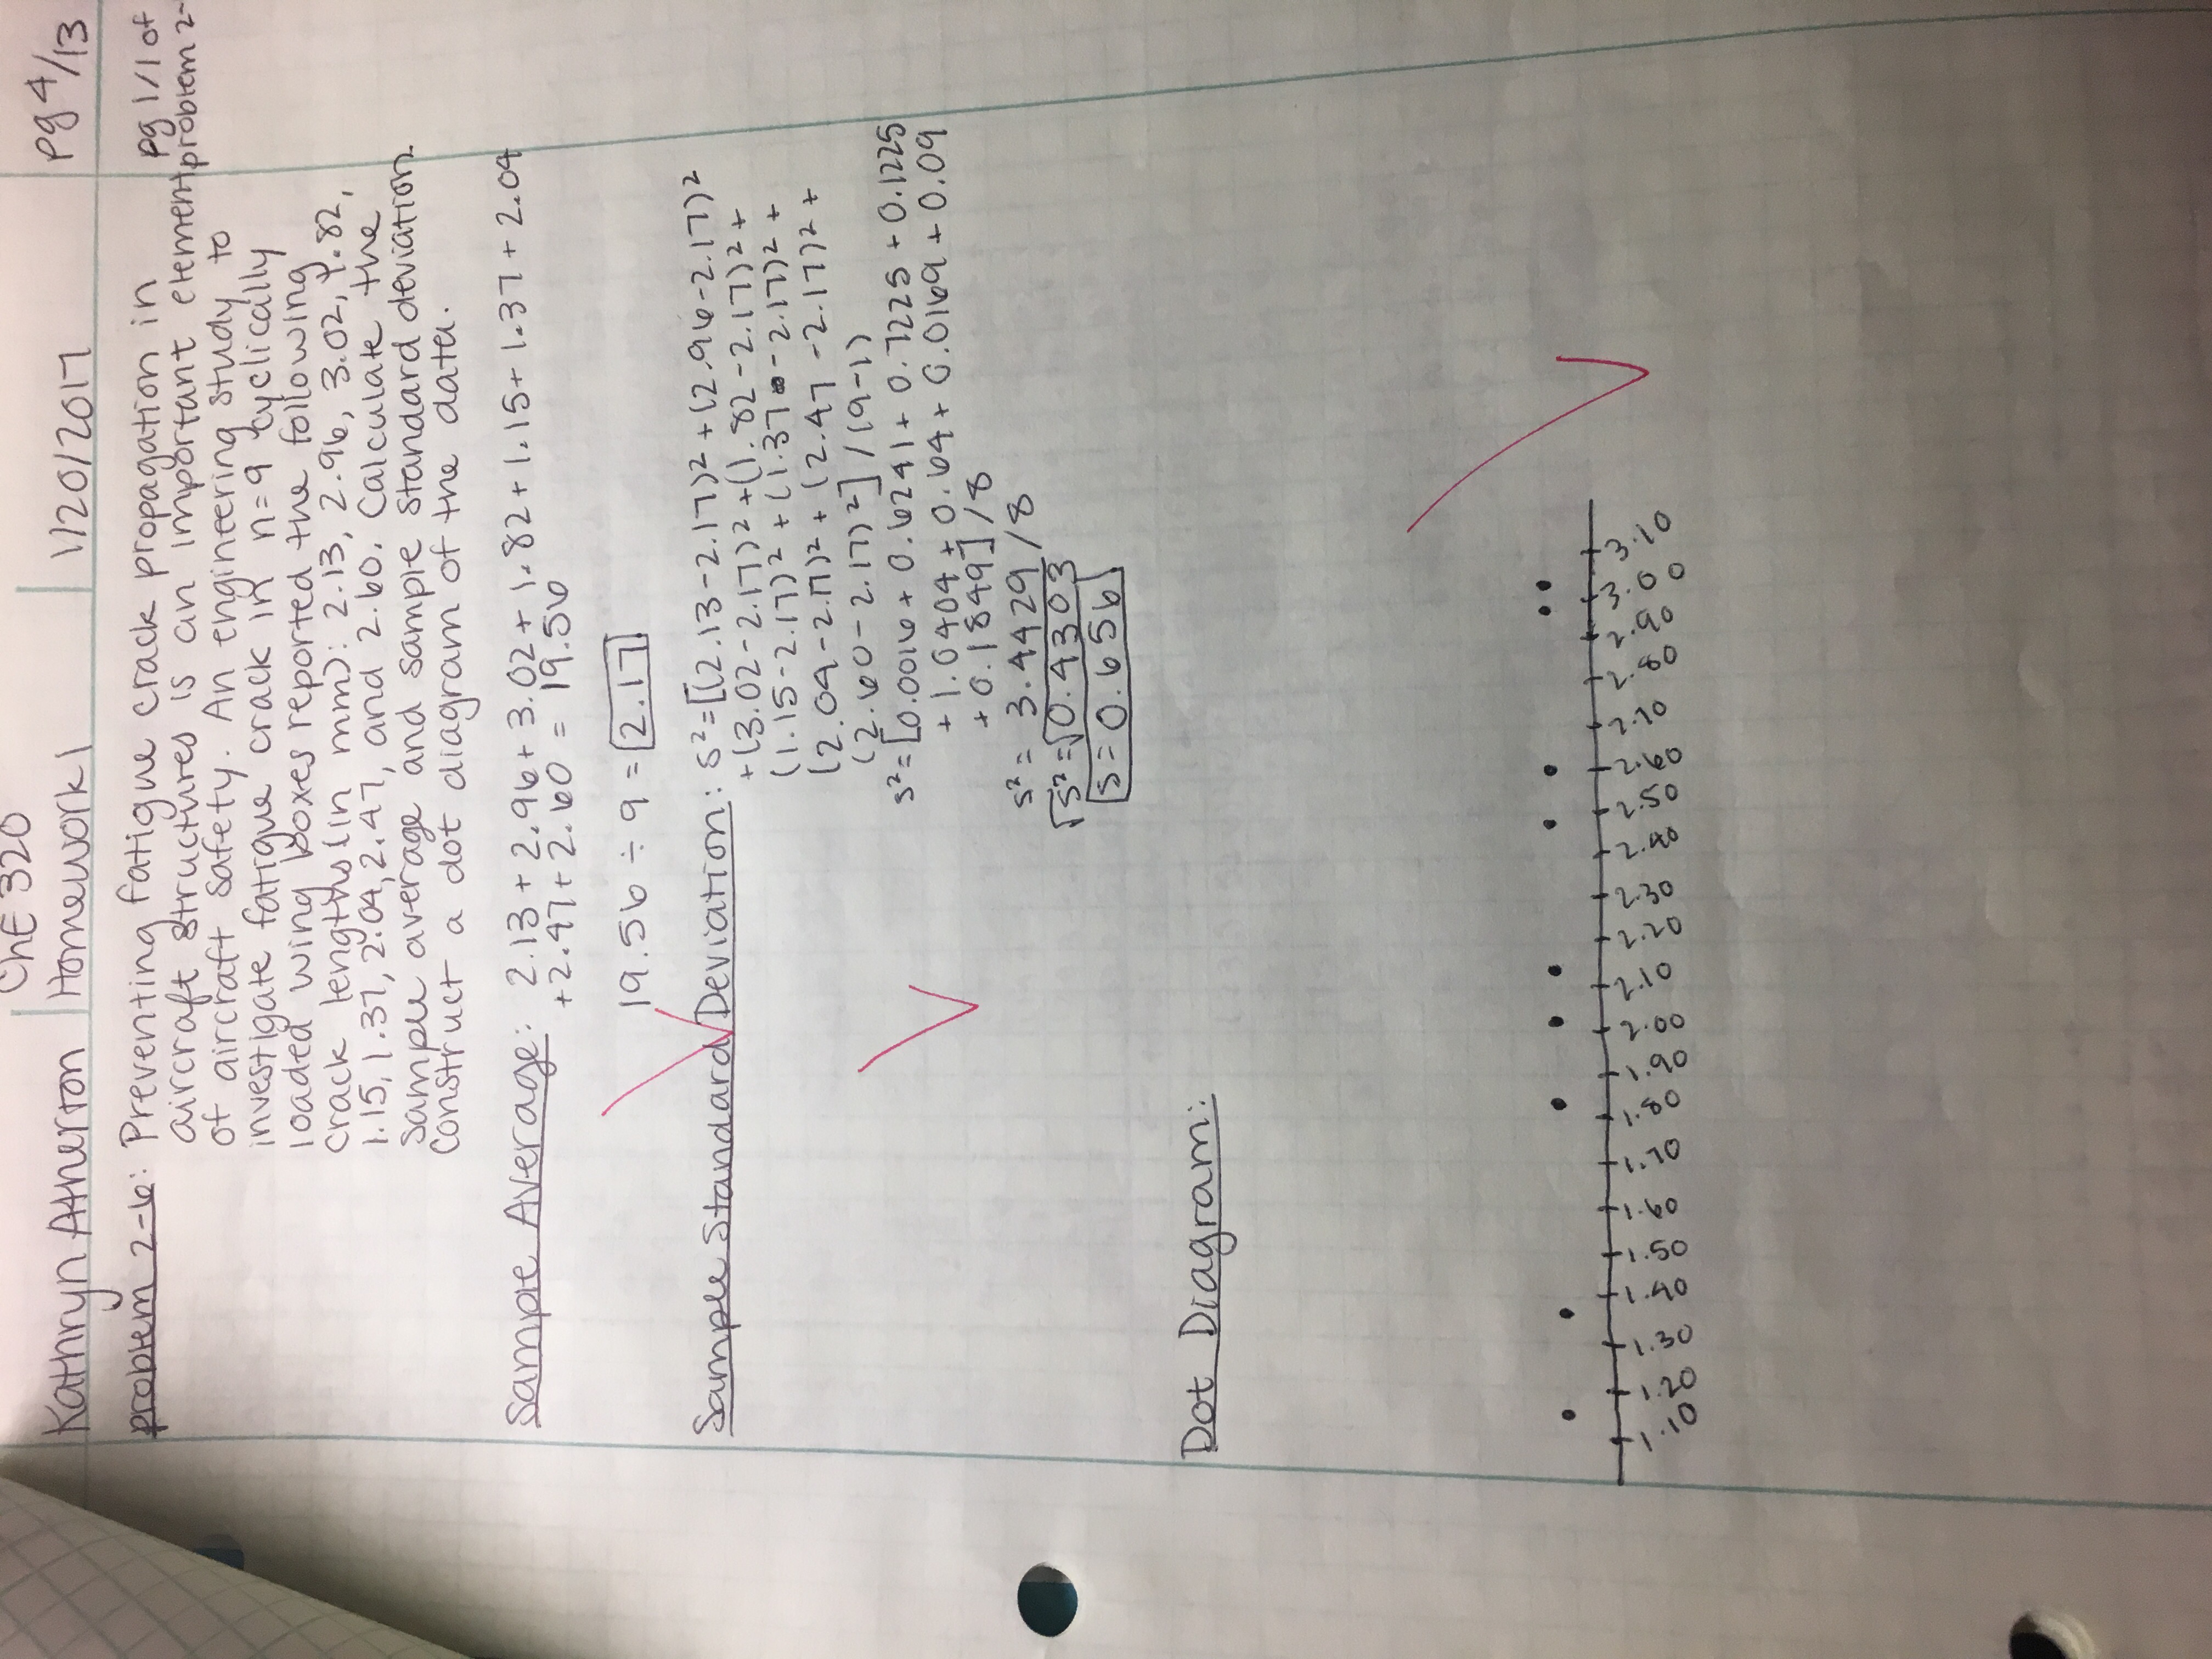 ChE 320
Kathryn Atherton Homework 1 1/20/2017 pg 4/13
problem 2-6: Preventing fatigue crack propagation in pg 1/1 of
aircraft structures is an important element problem 2-
of aircraft safety. An engineering study to
investigate fatigue crack in n=9 cyclically
loaded wing boxes reported the following
crack lengths (in mm): 2.13, 2.96, 3.02, 1.82,
1.15, 1.37, 2.04, 2.47, and 2.60. Calculate the
sample average and sample standard deviation.
Construct a dot diagram of the data.
Sample Average: 2.13 + 2.96 + 3.02 + 1.82 + 1.15 + 1.37 + 2.04
+ 2.47 + 2.60 = 19.56
19.56 ÷ 9 = 2.17
Sample Standard Deviation: s²=[(2.13-2.17)² + (2.96-2.17)²
+ (3.02-2.17)² + (1.82-2.17)² +
(1.15-2.17)² + (1.37 - 2.17)² +
(2.04-2.17)² + (2.47-2.17)² +
(2.60-2.17)²] / (9-1)
s²=[0.0016 + 0.6241 + 0.7225 + 0.1225
+ 1.0404 + 0.64 + 0.0169 + 0.09
+ 0.1849] / 8
s² = 3.4429 / 8
√s² = √0.4303
s = 0.656
Dot Diagram:
1.10 1.20 1.30 1.40 1.50 1.60 1.70 1.80 1.90 2.00 2.10 2.20 2.30 2.40 2.50 2.60 2.70 2.80 2.90 3.00 3.10